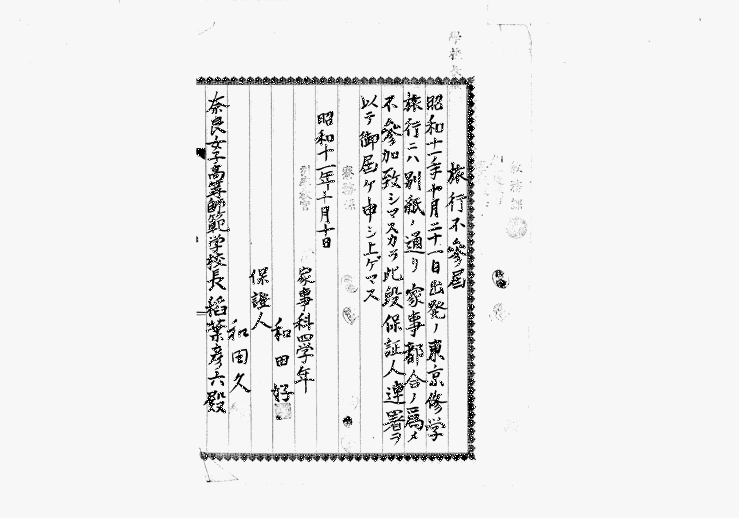 旅行不參届
昭和十一年十月二十一日出発ノ東京修学
旅行ニハ別紙ノ通リ家事都合ノ爲メ
不參加致シマスカラ此段保証人連署ヲ
以テ御届ケ申シ上ゲマス
昭和十一年十月十日
家事科四学年
和田好
保證人
和田久
奈良女子高等師範学校長 稻葉彦六殿